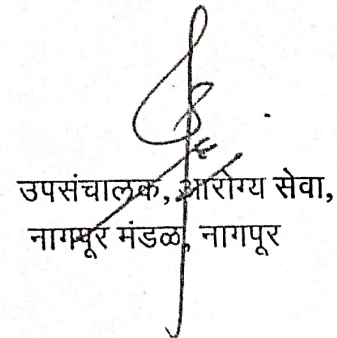 उपसंचालक, आरोग्य सेवा,
नागपूर मंडळ, नागपूर